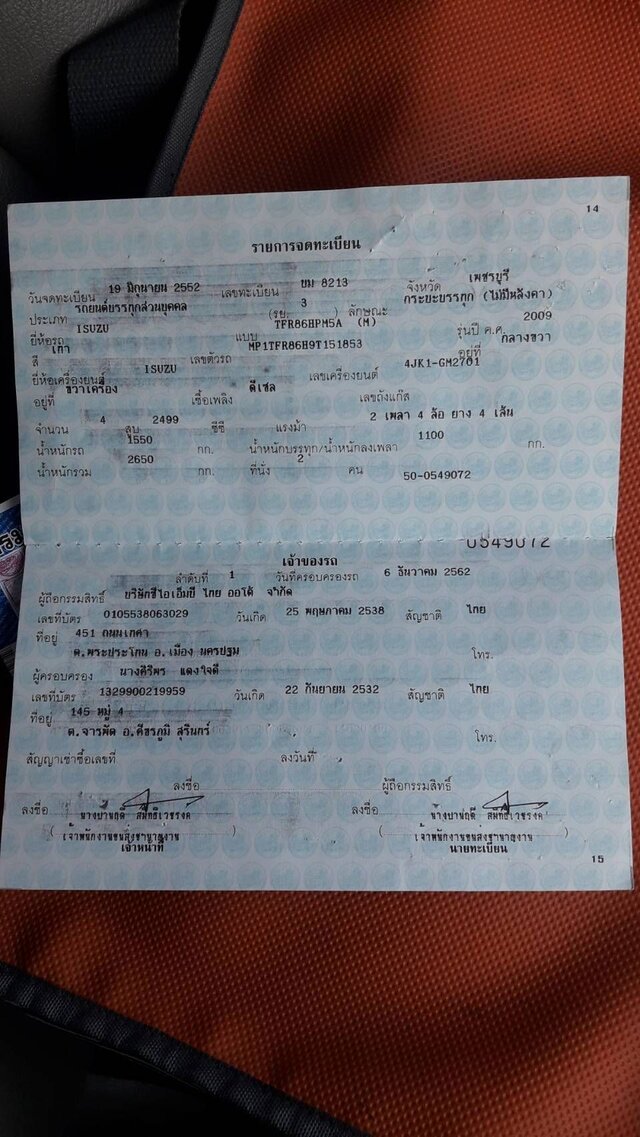 14
รายการจดทะเบียน
วันจดทะเบียน 19 มิถุนายน 2552 เลขทะเบียน ยม 8213 จังหวัด เพชรบุรี
ประเภท รถยนต์บรรทุกส่วนบุคคล (รย. 3 ) ลักษณะ กระบะบรรทุก (ไม่มีหลังคา)
ยี่ห้อรถ ISUZU แบบ TFR86HPM5A (M) รุ่นปี ค.ศ. 2009
สี เทา เลขตัวรถ MP1TFR86H9T151853 อยู่ที่ กลางขวา
ยี่ห้อเครื่องยนต์ ISUZU เลขเครื่องยนต์ 4JK1-GM2701
อยู่ที่ ขวาเครื่อง เชื้อเพลิง ดีเซล เลขถังแก๊ส
จำนวน 4 สูบ 2499 ซีซี แรงม้า 2 เพลา 4 ล้อ ยาง 4 เส้น
น้ำหนักรถ 1550 กก. น้ำหนักบรรทุก/น้ำหนักลงเพลา 1100 กก.
น้ำหนักรวม 2650 กก. ที่นั่ง 2 คน 50-0549072
0549072
เจ้าของรถ
ลำดับที่ 1 วันที่ครอบครองรถ 6 ธันวาคม 2562
ผู้ถือกรรมสิทธิ์ บริษัทซีไอเอ็มบี ไทย ออโต้ จำกัด
เลขที่บัตร 0105538063029 วันเกิด 25 พฤษภาคม 2538 สัญชาติ ไทย
ที่อยู่ 451 ถนนเทศา
ต.พระประโทน อ.เมือง นครปฐม โทร.
ผู้ครอบครอง นางศิริพร แดงใจดี
เลขที่บัตร 1329900219959 วันเกิด 22 กันยายน 2532 สัญชาติ ไทย
ที่อยู่ 145 หมู่ 4
ต.จารพัด อ.ศีขรภูมิ สุรินทร์ โทร.
สัญญาเช่าซื้อเลขที่ ลงวันที่
ลงชื่อ ผู้ถือกรรมสิทธิ์
ลงชื่อ ลงชื่อ
( เจ้าพนักงานขนส่งชำนาญงาน ) ( เจ้าพนักงานขนส่งชำนาญงาน )
เจ้าหน้าที่ นายทะเบียน
15